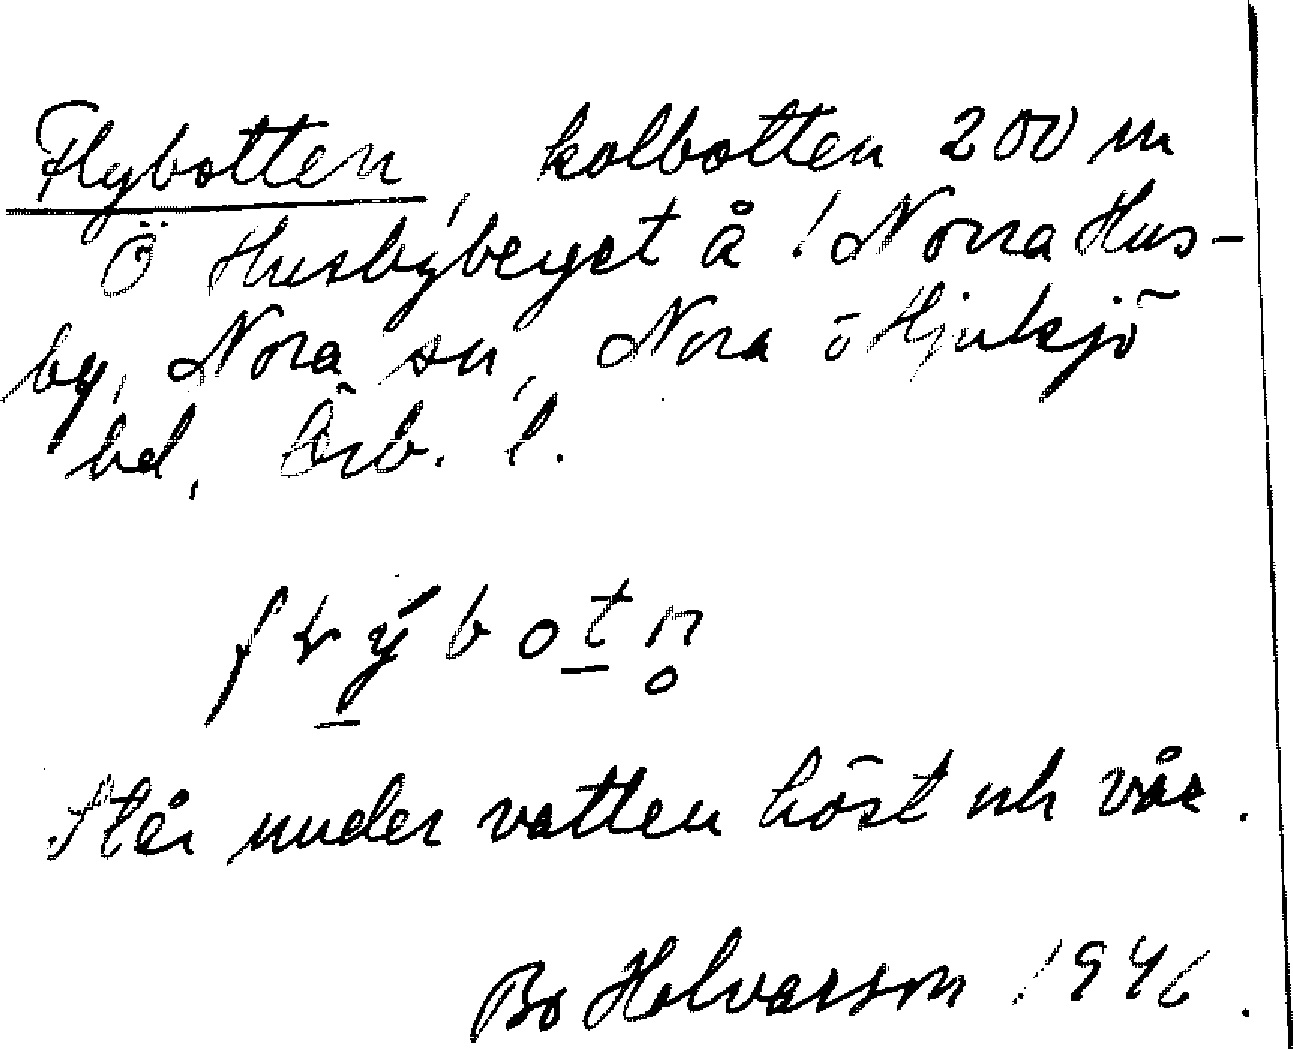 Flybotten, kolbotten 200 m
Ö Husbyberget å 1 Norra Hus-
by, Nora sn, Nora o Hjulsjö
bd, Örb. l.
flybotn
Står under vatten höst och vår.
Bo Halvarson 1946.